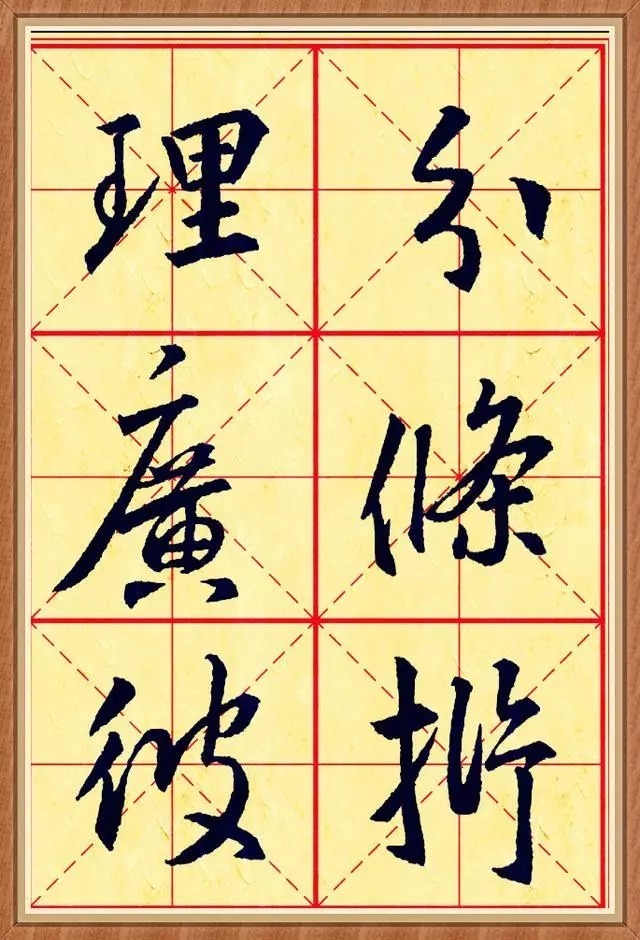 分條析
理廣彼